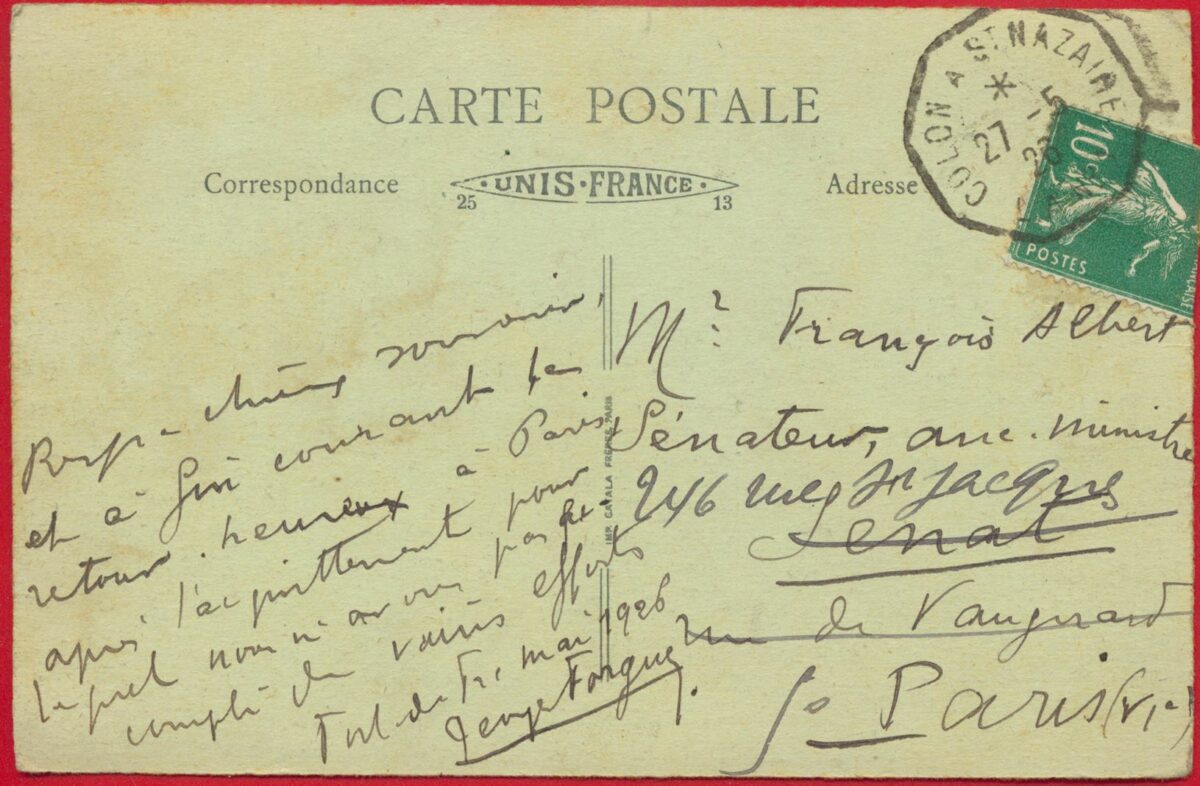 CARTE POSTALE
Correspondance
UNIS-FRANCE
25 13
Adresse
COLON A ST NAZAIRE
* 27 -5
26
10c
POSTES
souvenir,
et à courant le
retour heureux à Paris
après l'acquittement pour
lequel nous n'avons pas
compté de vains efforts
Fort de Fce mai 1926
IMP CATALA FRERES PARIS
Mr François Albert
Sénateur, anc. ministre
246 rue St Jacques
Sénat
rue de Vaugirard
Paris (VIe)